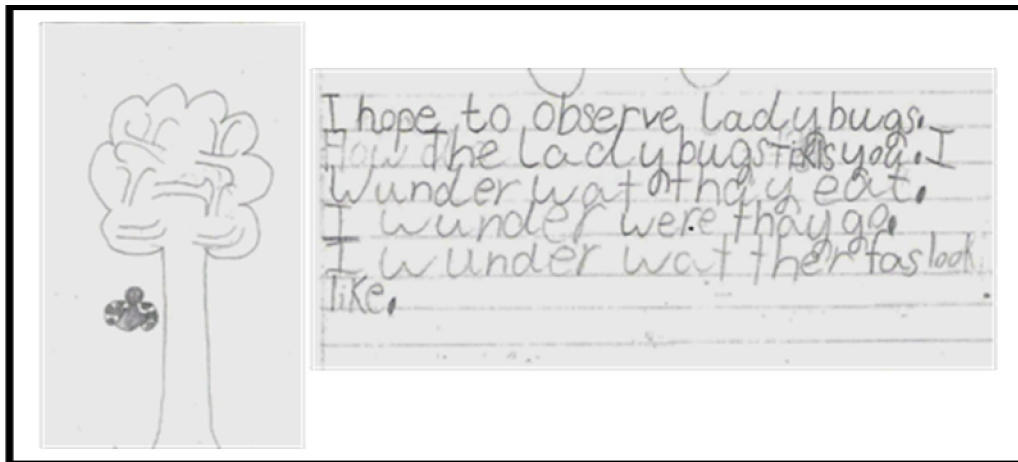 I hope to observe ladybugs.
How the ladybugs tikls you. I
Wunder wat thay eat.
I wunder were thay go.
I wunder wat ther fas look
like.